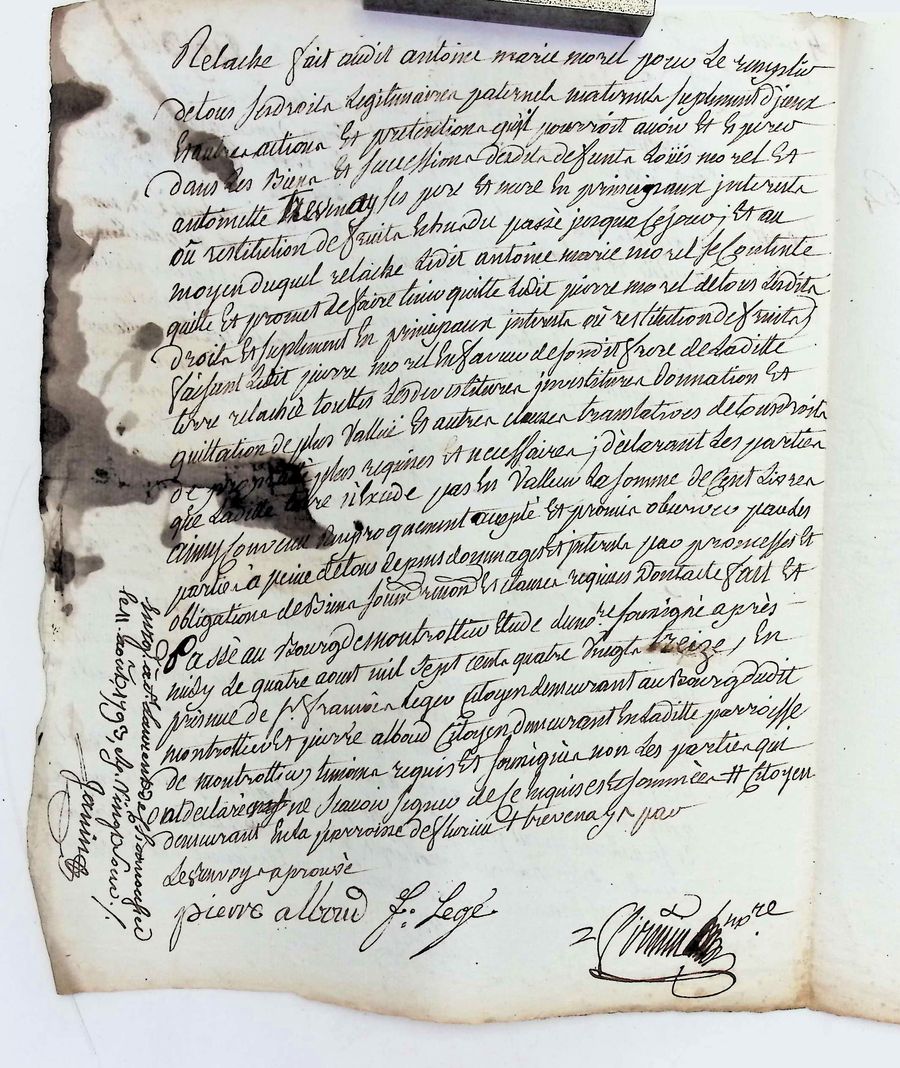 Relache fait audit antoine marie morel pour Le remplir
de tous ses droits Legitimaires paternels maternels suplement d'jceux
Et autres actions Et pretentions qu'il pourroit avoir Et Esperer
dans Les Biens Et successions desdits defunts Loüis morel Et
antoinette trevenay ses pere Et mere En principaux jnterests
oû restitution de fruits Echus du passé jusqua Ce jour ; Et au
moyen duquel relache Ledit antoine marie morel se Contente
quitte Et promet de faire tenir quitte Ledit pierre morel de tous Lesdits
droits Et suplement En principaux jnterests oû restitution de fruits)
faisant Ledit pierre morel En faveur de sondit frere de Laditte
terre relachée touttes Les devestitures jnvestitures Donnation Et
quittation de plus Vallüe Et autres clauses translatives de tous droits
de plus requises et necessaires ; déclarant Les parties
que Laditte terre n'Excede pas En Valleur La somme de Cent Livres
ainsy Convenu reciproquement accepté Et promis observer par Les
parties a peine de tous depens dommages et jnterests par promesses Et
obligations de Biens soumissions Et clauses requises Dont acte fait Et
Passé au Bourg de montrottier Etude du nore soussigné après
midy Le quatre aoust mil sept cents quatre Vingts treize, En
presence de sr françois Leger Citoyen demeurant au Bourg dudit
montrottier Et pierre alboud Citoyen demeurant En Laditte parroisse
de montrottier temoins requis Et soussignés non Les parties qui
ont declaré ne scavoir signer de Ce requises Et sommées # Citoyen
demeurant En La parroisse de + trevenay par
Les renvoys aprouvés
pierre alboud f. Legé
nore
Enrg. à St. Laurent de Chamousset
le 11. août 1793,
Janin